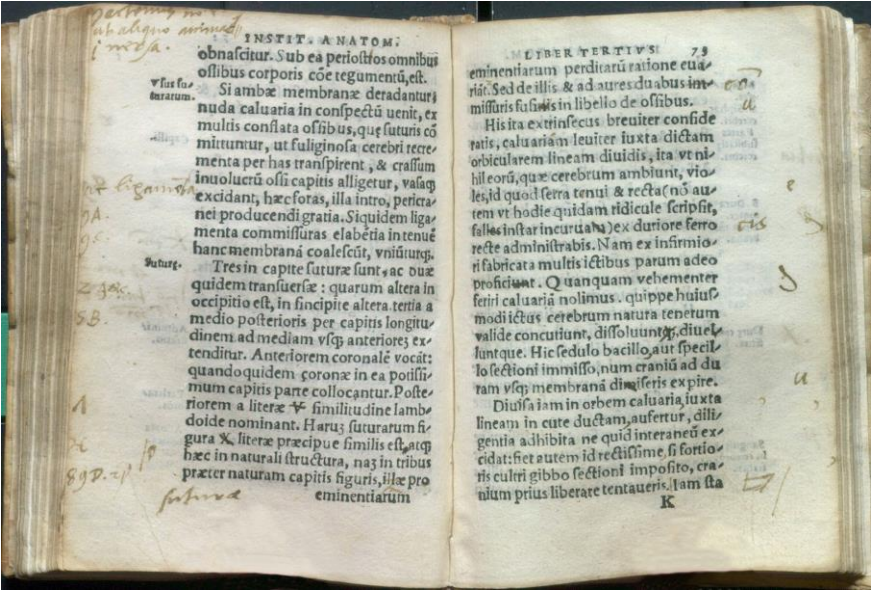 INSTIT. ANATOM.
obnascitur. Sub ea periostios omnibus
ossibus corporis cõe tegumentũ, est.
Vsus su-
turarum.
Si ambæ membranæ deradantur,
nuda caluaria in conspectũ uenit, ex
multis conflata ossibus, quę suturis cõ
mittuntur, ut fuliginosa cerebri recre-
menta per has transpirent, & crassum
inuolucrũ ossi capitis alligetur, vasaq;
excidant, hæc foras, illa intro, pericra-
nei producendi gratia. Siquidem liga-
menta commissuras elabẽtia in tenuẽ
hanc membranã coalescũt, vniũturq;.
Suturę.
Tres in capite suturæ sunt, ac duæ
quidem transuersæ: quarum altera in
occipitio est, in sincipite altera. tertia a
medio posterioris per capitis longitu-
dinem ad mediam vsq; anterioreȝ ex-
tenditur. Anteriorem coronalẽ vocãt:
quandoquidem coronæ in ea potissi-
mum capitis parte collocantur. Poste-
riorem a literæ V similitudine lamb-
doide nominant. Haruȝ suturarum fi-
gura X literæ præcipue similis est, atq;
hæc in naturali structura, naȝ in tribus
præter naturam capitis figuris, illæ pro
suturæ
eminentiarum
LIBER TERTIVS 73
eminentiarum perditarũ ratione eua-
riãt. Sed de illis & ad aures duabus im-
missuris fusius in libello de ossibus.
His ita extrinsecus breuiter conside
ratis, caluariam leuiter iuxta dictam
orbicularem lineam diuidis, ita vt ni-
hil eorũ, quæ cerebrum ambiunt, vio-
les, id quod serra tenui & recta (nõ au-
tem vt hodie quidam ridicule scripsit,
falcis instar incurua) ex duriore ferro
recte administrabis. Nam ex infirmio-
ri fabricata multis ictibus parum adeo
proficiunt. Quanquam vehementer
feriri caluariã nolimus. quippe huius-
modi ictus cerebrum natura tenerum
valide concutiunt, dissoluuntq;, diuel-
luntque. Hic sedulo bacillo, aut specil-
lo sectioni immisso, num craniũ ad du
ram vsq; membranã dimiseris expire.
Diuisa iam in orbem caluaria, iuxta
lineam in cute ductam, aufertur, dili-
gentia adhibita ne quid interaneũ ex-
cidat: fiet autem id rectissime, si fortio-
ris cultri gibbo sectioni imposito, cra-
nium prius liberare tentaueris. Iam sta
K